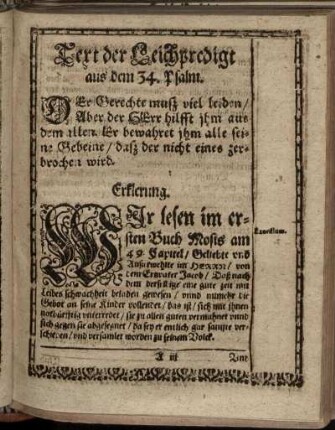 Text der Leichpredigt
aus dem 34. Psalm.
DEr Gerechte muß viel leiden/
Aber der HErr hilfft jhm aus
dem allen. Er bewahret jhm alle sei-
ne Gebeine/ daß der nicht eines zer-
brochen wird.
Erklerung.
WIr lesen im er-
sten Buch Mosis am
49 Capitel/ Geliebte vnd
Außerwehlte im HERRN/ von
dem Ertzvater Jacob/ Daß nach
dem derselbige eine gute zeit mit
Leibes schwachheit beladen gewesen/ vnnd nunmehr die
Gebot an seine Kinder vollendet/ das ist/ sich mit jhnen
notdürfftig vnterredet/ sie zu allen guten vermahnet vnnd
sich gegen sie abgesegnet/ da sey er endlich gar sanffte ver-
schieden/ vnd versamlet worden zu seinem Volck.
Exordium.
A iij